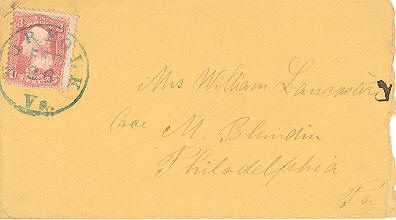 NORFOLK
Va.
Mrs William Lancaster
Care M. Blundin
Philadelphia
Pa